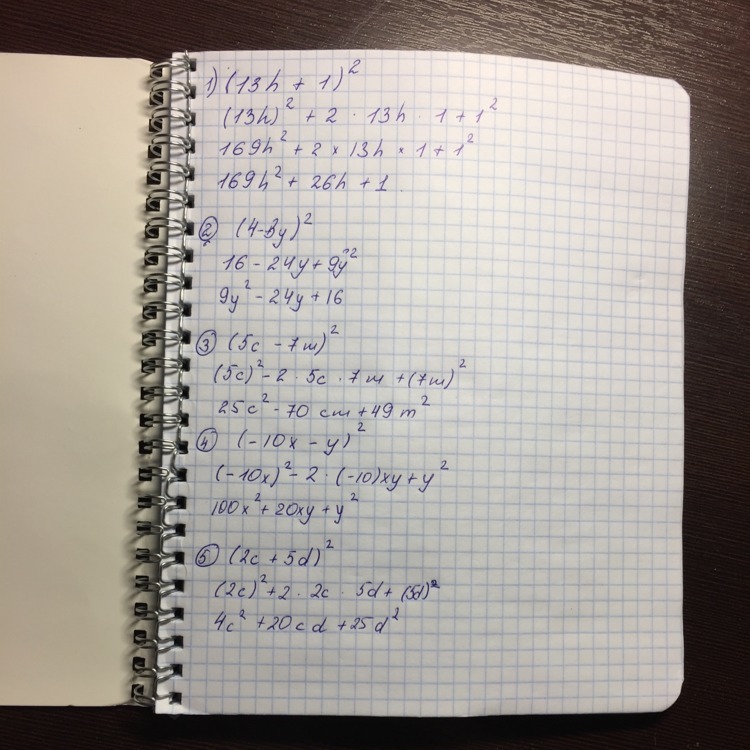 1) (13h + 1)²
(13h)² + 2 · 13h · 1 + 1²
169h² + 2 × 13h × 1 + 1²
169h² + 26h + 1
② (4-3y)²
16 - 24y + 9y²
9y² - 24y + 16
③ (5c - 7m)²
(5c)² - 2 · 5c · 7m + (7m)²
25c² - 70 cm + 49 m²
④ (-10x - y)²
(-10x)² - 2 · (-10)xy + y²
100x² + 20xy + y²
⑤ (2c + 5d)²
(2c)² + 2 · 2c · 5d + (5d)²
4c² + 20cd + 25d²